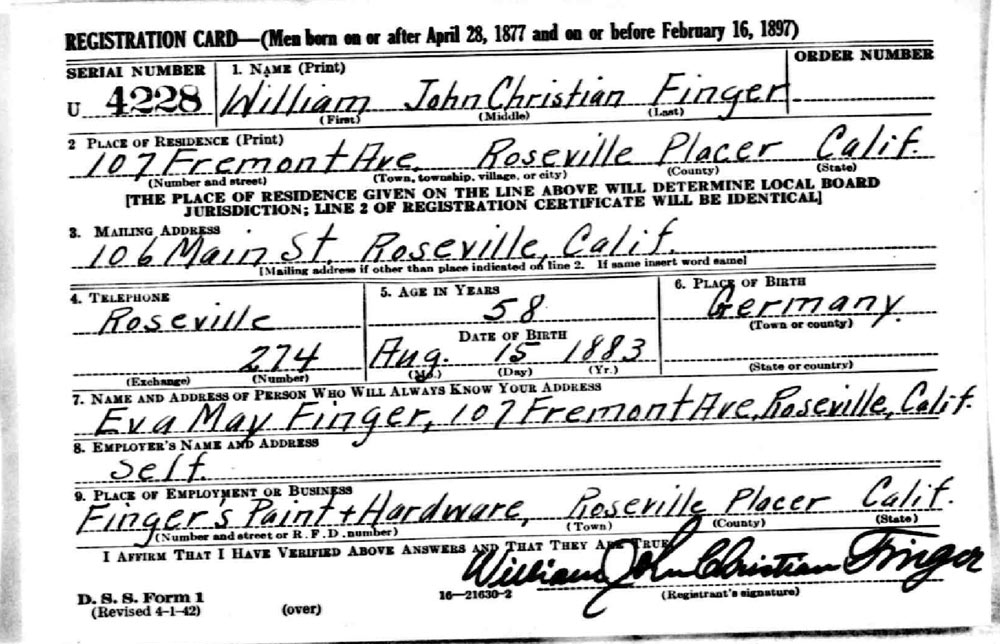 REGISTRATION CARD—(Men born on or after April 28, 1877 and on or before February 16, 1897)
SERIAL NUMBER 1. NAME (Print) ORDER NUMBER
U 4228 William John Christian Finger
(First) (Middle) (Last)
2 PLACE OF RESIDENCE (Print)
107 Fremont Ave. Roseville Placer Calif.
(Number and street) (Town, township, village, or city) (County) (State)
[THE PLACE OF RESIDENCE GIVEN ON THE LINE ABOVE WILL DETERMINE LOCAL BOARD
JURISDICTION; LINE 2 OF REGISTRATION CERTIFICATE WILL BE IDENTICAL]
3. MAILING ADDRESS
106 Main St. Roseville, Calif.
[Mailing address if other than place indicated on line 2. If same insert word same]
4. TELEPHONE 5. AGE IN YEARS 6. PLACE OF BIRTH
Roseville 58 Germany.
DATE OF BIRTH (Town or county)
274 Aug. 15 1883
(Exchange) (Number) (Mo.) (Day) (Yr.) (State or country)
7. NAME AND ADDRESS OF PERSON WHO WILL ALWAYS KNOW YOUR ADDRESS
Eva May Finger, 107 Fremont Ave, Roseville, Calif.
8. EMPLOYER'S NAME AND ADDRESS
Self.
9. PLACE OF EMPLOYMENT OR BUSINESS
Finger's Paint + Hardware, Roseville Placer Calif.
(Number and street or R. F. D. number) (Town) (County) (State)
I AFFIRM THAT I HAVE VERIFIED ABOVE ANSWERS AND THAT THEY ARE TRUE
William John Christian Finger
D. S. S. Form 1 16—21630-2 (Registrant's signature)
(Revised 4-1-42) (over)